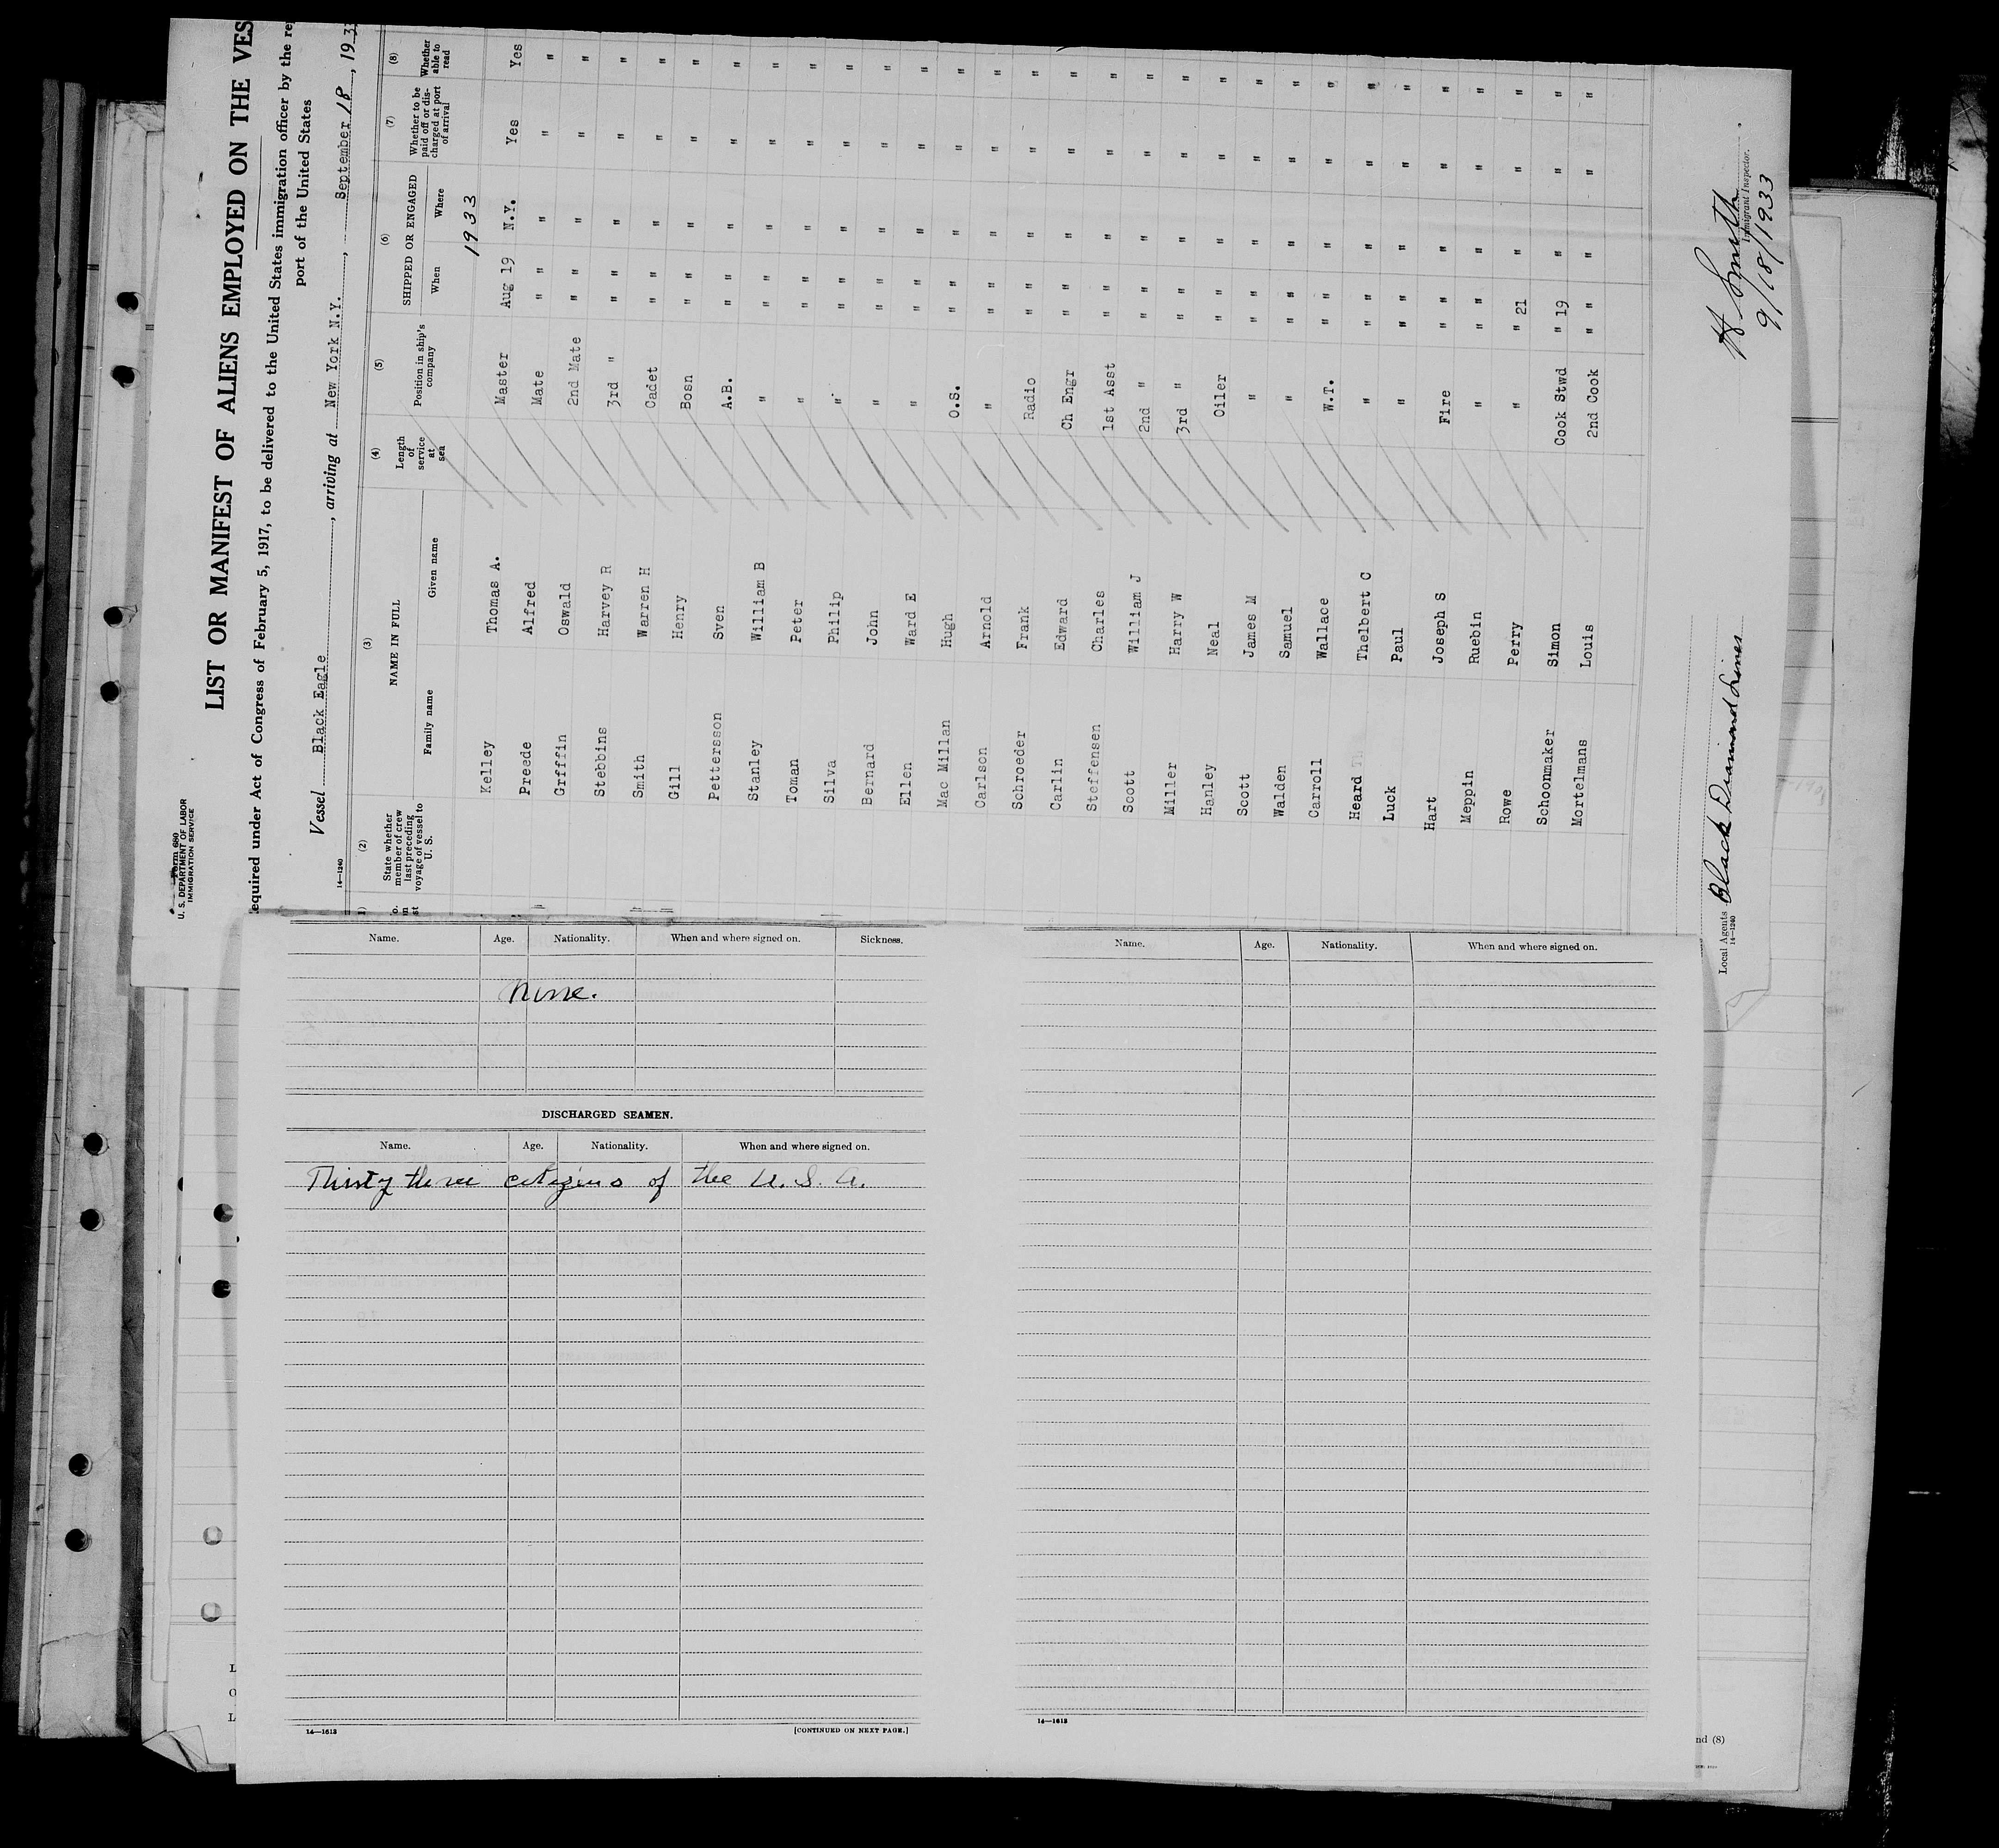 Form 680
U. S. DEPARTMENT OF LABOR
IMMIGRATION SERVICE
LIST OR MANIFEST OF ALIENS EMPLOYED ON THE VES
equired under Act of Congress of February 5, 1917, to be delivered to the United States immigration officer by the re
port of the United States
Vessel Black Eagle, arriving at New York N.Y., September 18, 1933
14—1240
(2) (3) (4) (5) (6) (7) (8)
State whether member of crew last preceding voyage of vessel to U. S. NAME IN FULL Length of service at sea Position in ship's company SHIPPED OR ENGAGED Whether to be paid off or discharged at port of arrival Whether able to read
Family name Given name When Where
1933
Kelley Thomas A. Master Aug 19 N.Y. Yes Yes
Preede Alfred Mate " " " " "
Grffin Oswald 2nd Mate " " " " "
Stebbins Harvey R 3rd " " " " " "
Smith Warren H Cadet " " " " "
Gill Henry Bosn " " " " "
Pettersson Sven A.B. " " " " "
Stanley William B " " " " " "
Toman Peter " " " " " "
Silva Philip " " " " " "
Bernard John " " " " " "
Ellen Ward E " " " " " "
Mac Millan Hugh O.S. " " " " "
Carlson Arnold " " " " " "
Schroeder Frank Radio " " " " "
Carlin Edward Ch Engr " " " " "
Steffensen Charles 1st Asst " " " " "
Scott William J 2nd " " " " " "
Miller Harry W 3rd " " " " " "
Hanley Neal Oiler " " " " "
Scott James M " " " " " "
Walden Samuel " " " " " "
Carroll Wallace W.T. " " " " "
Heard Thelbert C " " " " " "
Luck Paul " " " " " "
Hart Joseph S Fire " " " " "
Meppin Ruebin " " " " " "
Rowe Perry " " 21 " " "
Schoonmaker Simon Cook Stwd " 19 " " "
Mortelmans Louis 2nd Cook " " " " "
Local Agents Black Diamond Lines
14—1240
H Smith
Immigrant Inspector.
9/18/1933
Name. Age. Nationality. When and where signed on. Sickness.
none.
DISCHARGED SEAMEN.
Name. Age. Nationality. When and where signed on.
Thirty three citizens of the U. S. A.
14—1613 [CONTINUED ON NEXT PAGE.]
Name. Age. Nationality. When and where signed on.
14—1613
nd (8)